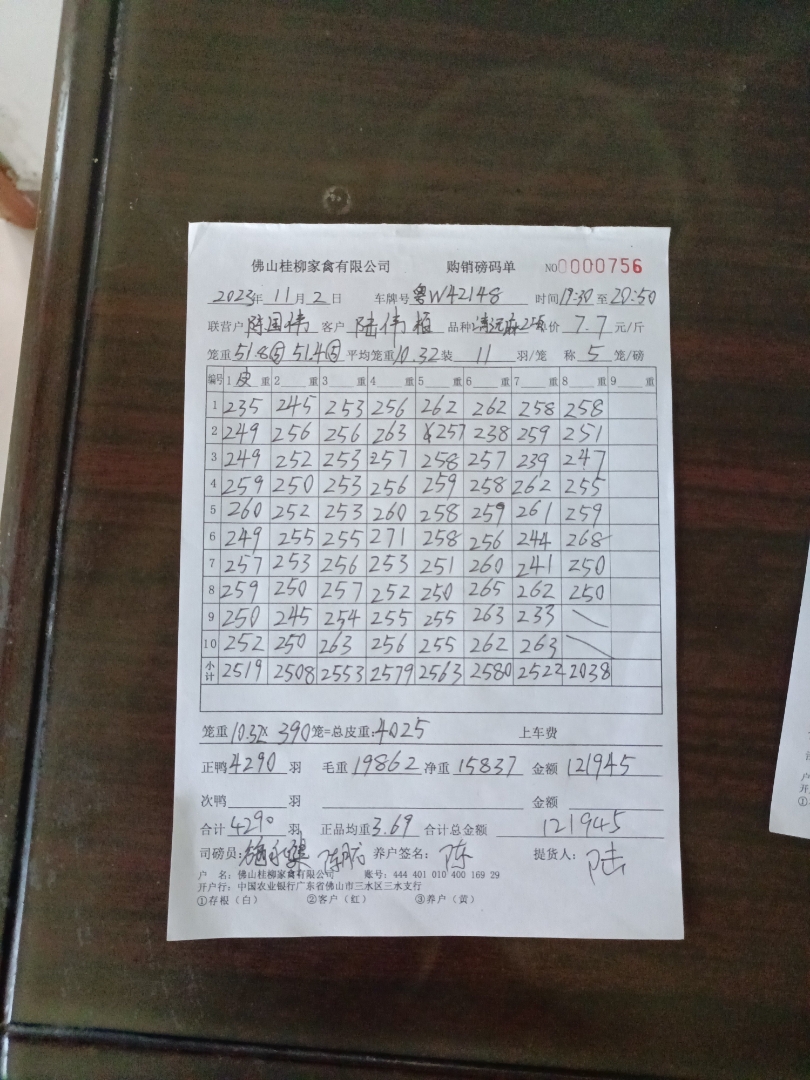 佛山桂柳家禽有限公司 购销磅码单 NO0000756
2023年 11月 2日 车牌号 粤W42148 时间 19:30 至 20:50
联营户 陈国伟 客户 陆伟 品种 清远麻 单价 7.7 元/斤
笼重 51.8⑤ 51.4⑤ 平均笼重 10.32 装 11 羽/笼 称 5 笼/磅
编号 1 皮 重 2 重 3 重 4 重 5 重 6 重 7 重 8 重 9 重
1 235 245 253 256 262 262 258 258
2 249 256 256 263 257 238 259 251
3 249 252 253 257 258 257 239 247
4 259 250 253 256 259 258 262 255
5 260 252 253 260 258 259 261 259
6 249 255 255 271 258 256 244 268
7 257 253 256 253 251 260 241 250
8 259 250 257 252 250 265 262 250
9 250 245 254 255 255 263 233
10 252 250 263 256 255 262 263
小计 2519 2508 2553 2579 2563 2580 2522 2038
笼重 10.32 × 390 笼=总皮重: 4025 上车费
正鸭 4290 羽 毛重 19862 净重 15837 金额 121945
次鸭 羽 金额
合计 4290 羽 正品均重 3.69 合计总金额 121945
司磅员: 养户签名: 陈 提货人: 陆
户 名: 佛山桂柳家禽有限公司 账号: 444 401 010 400 169 29
开户行: 中国农业银行广东省佛山市三水区三水支行
①存根(白) ②客户(红) ③养户(黄)